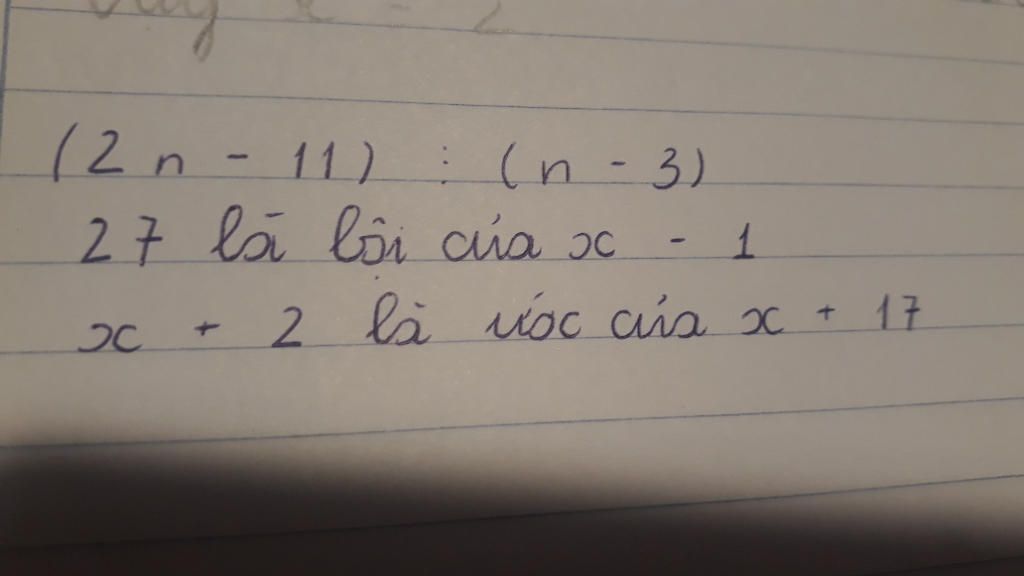 (2n - 11) ⋮ (n - 3)
27 là bội của x - 1
x + 2 là ước của x + 17